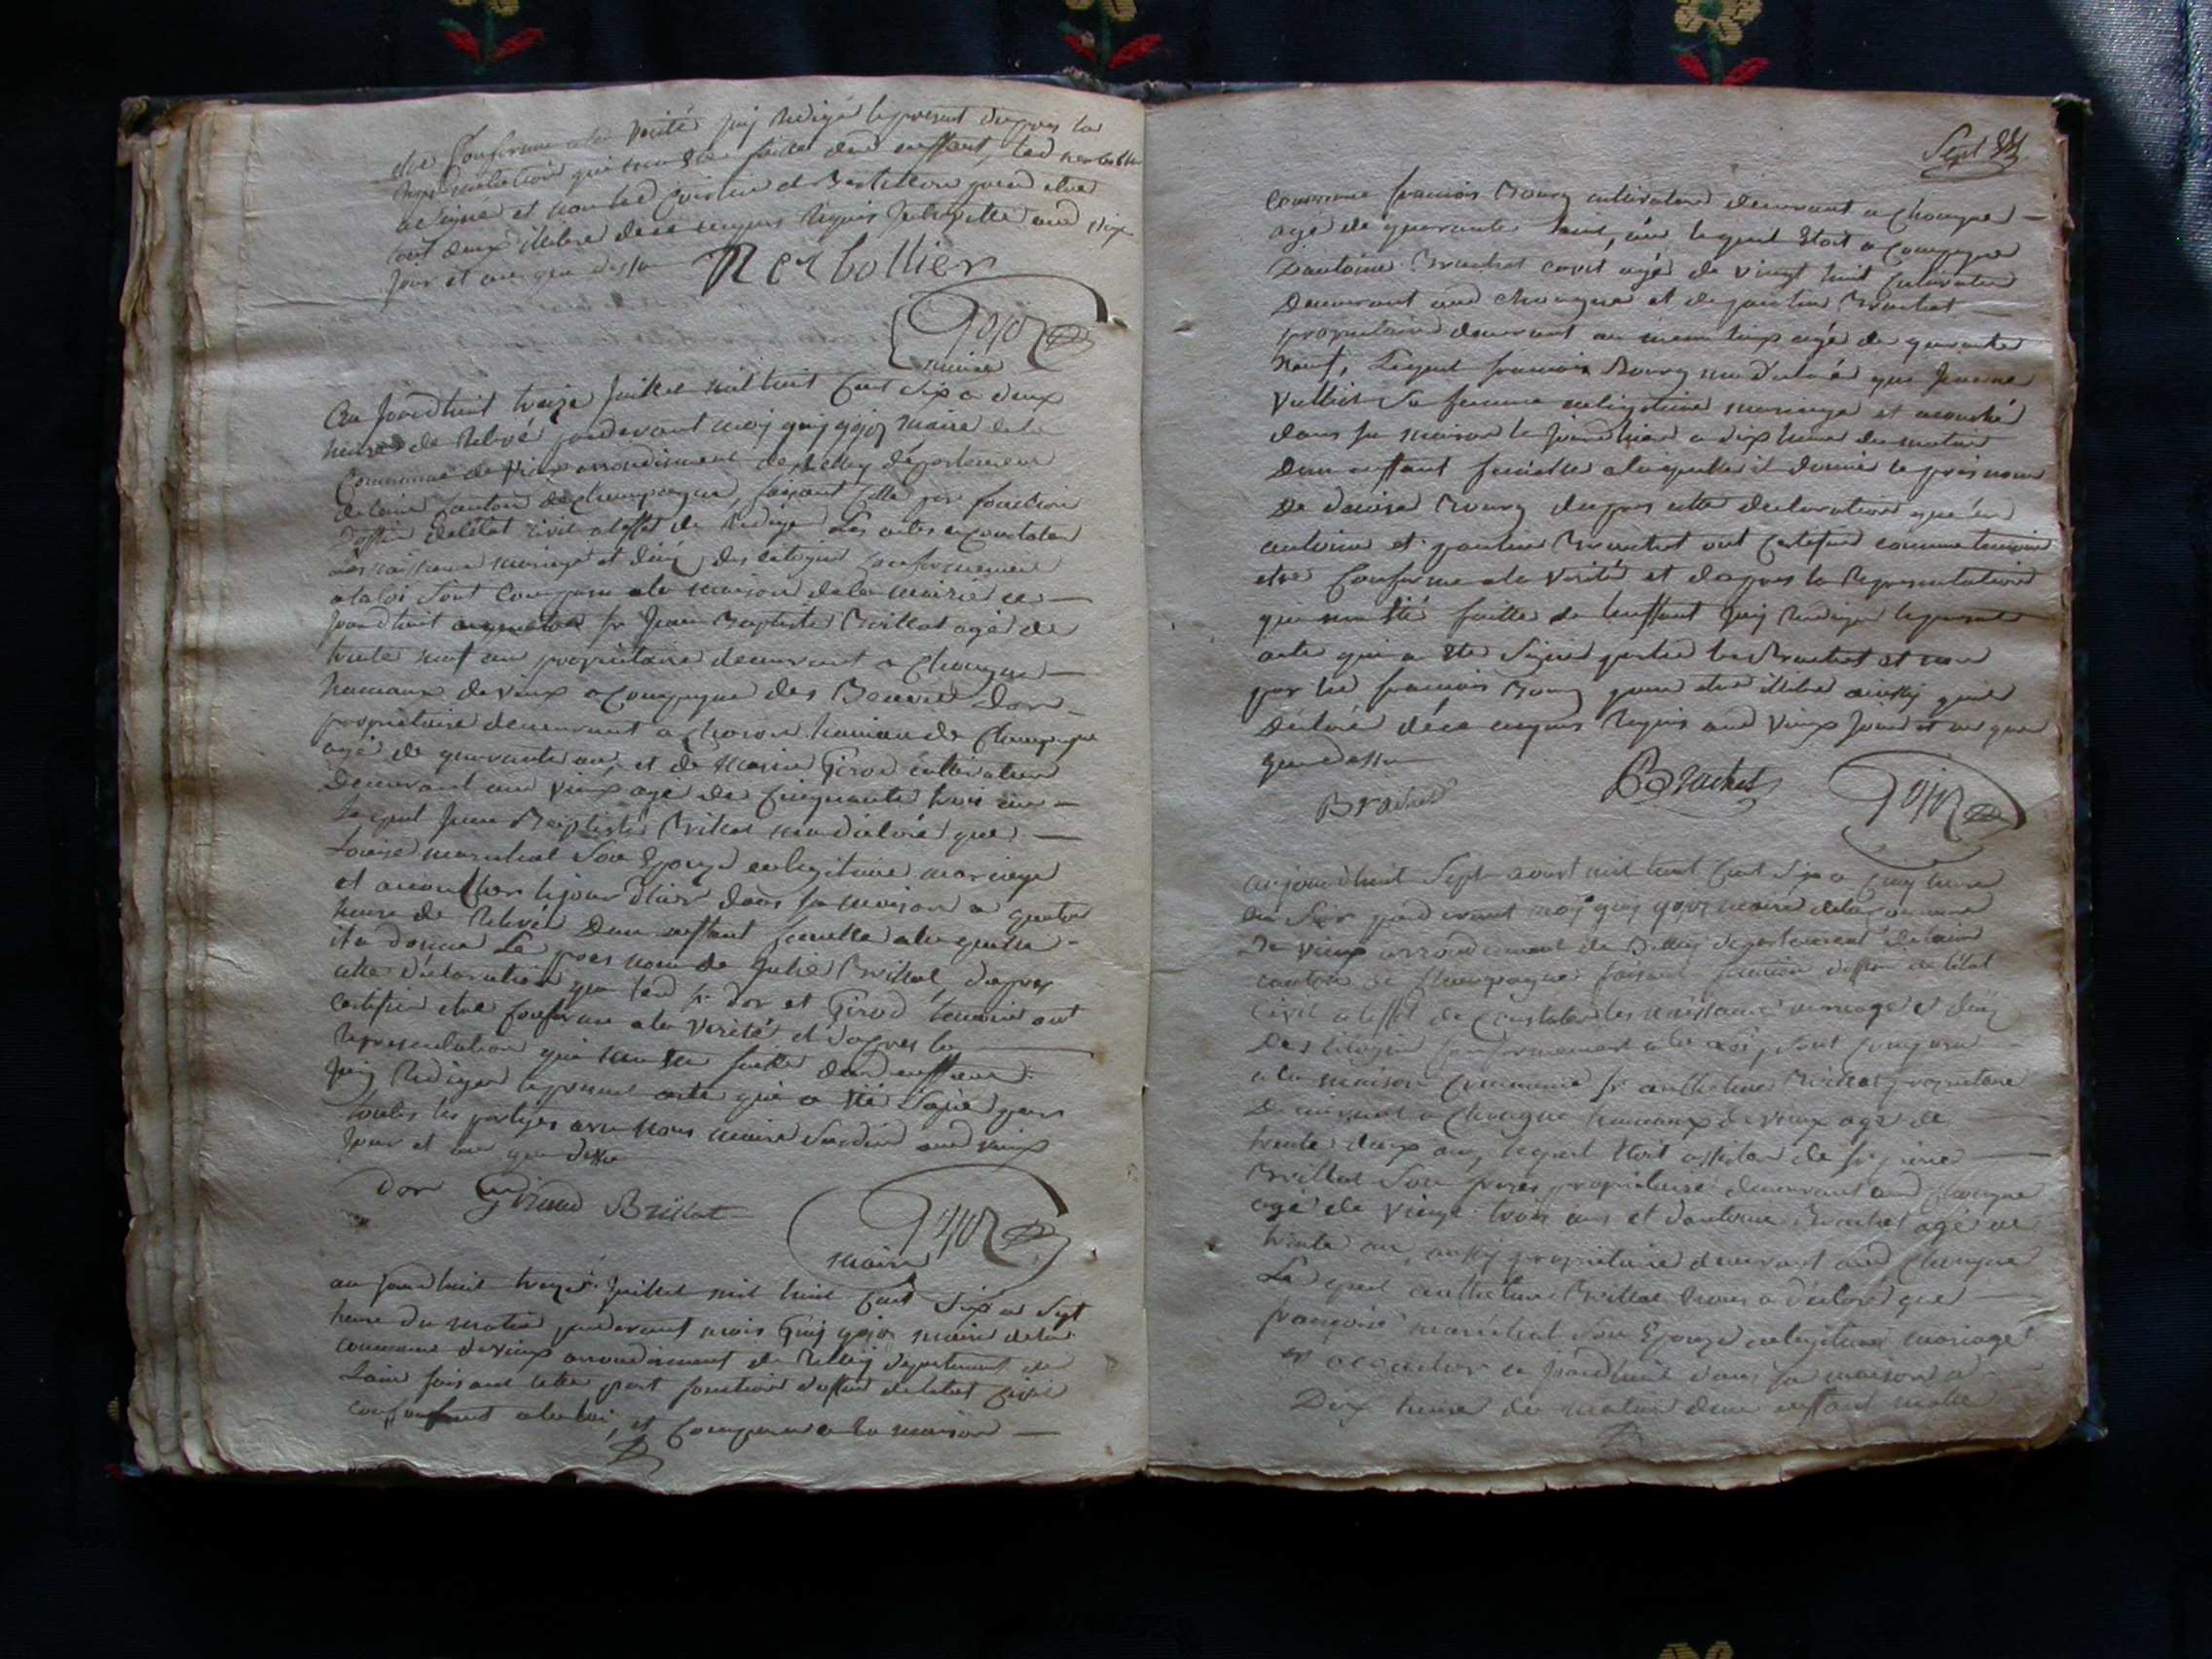 être Conforme ala verité j'ay Redigé le present daprès la
Representation qui ma été faitte dud enffant, led nerbollier
a signé et non led
sont deux illitere de ce enquis Requis Jal
jour et an que dessu
Nerbollier
Gojoz
maire
Au Jourdhuit treize Juillet mil huit Cent Six a deux
heures de Relevé pardevant moy guy gojoz maire de la
Commune de vieux arrondisment de belley département
delain Canton de champagne, faisant fonction
d'offier deletat civil aleffet de Rediger Les actes et constater
Les naissance mariage et decé des citoyen Conformement
alaloi Sont Comparu ala maison dela mairie ce
jourdhuit sr Jean Baptiste Brillat agé de
trente neuf an propriétaire demeurant a Chongne
hameaux de vieux acompagne des Dor
propriétaire demeurant a hameau de Champagne
agé de quarante an, et de Girod cultivateur
demeurant aud vieux age de Cinquante trois an
lequel Jean Baptiste Brillat ma déclaré que
Louise marechal Son Epouze enlegitime mariage
et acoucher le jour d'hier dans sa maison a quatre
heure de Relevée Dun enffant femelle alaquelle
ila donné Le prés nom de Julie Brillat, daprés
cette déclaration que led sr dor et Girod temoins ont
certifier être Conforme ala verité et d'apres la
representation qui ma été faitte dud enffant
jay Rediger le present acte qui a été Signé par
toutes les partyes avec nous maire Susdit aud vieux
jour et an que dessu
Dor Giroud Brillat
Gojoz
maire
au jourdhuit treize Juillet mil huit Cent Six a Sept
heure du matin pardevant mois Guy gojoz maire dela
commune de vieux arrondisment de Belley département de
Lain faisant fonction doffier deletat Civil
conforment alaloi, et Comparu a la maison
Sept
Commune francois Bourg cultivateur demeurant a Chongne
agé de quarante an, lequel etoit acompagné
Dantoine Brachet agé de vingt huit Cultivateur
Demeurant aud chongne et de Brachet
propriétaire demeurant au meme lieu agé de quarante
neuf, Lequel francois Bourg ma declaré que Jeanne
Vulliet Sa femme enlegitime mariage et acouché
dans sa maison le jour d'hier a dix heure du matin
Dun enffant femelle alaquelle il donné le prés nom
De Bourg daprés cette declaration que
antoine et Brachet ont certifier comme temoins
etre Conforme ala verité et daprès la Representation
qui ma été faitte de lenffant Jay Rediger le present
acte qui a été Signé par les Brachet et non
par led francois Bourg pour etre illitere ainsy quil
Déclaré de ce enquis Requis aud vieux jour et an que
que dessu
Brachet Brachet Gojoz
aujourdhuit Sept aoust mil huit Cent Six a Cinq heure
du Soir pardevant moy guy gojoz maire delacommune
De vieux arrondisment de Belley département de lain
canton de Champagne faisant fonction doffier de létat
Civil aleffet de Constater les naissance mariage et decé
Des citoyen Conformement ala loi, Sont comparu
ala maison Commune sr anthelme Brillat propriétaire
Demeurant a Chongne hameaux de vieux agé de
trente deux an, lequel étoit assister de sr pierre
Brillat Son freres propriétaire demeurant aud Chongne
agé de vingt trois ans et dantoine Brachet agé de
trente an, aussy propriétaire demeurant aud Chongne
Le quel anthelme Brillat nous a déclaré que
françoise maréchal Son Epouze enlegitime mariage
et acoucher ce jourdhuit dans sa maison a
Dix heure du matin dun enffant malle